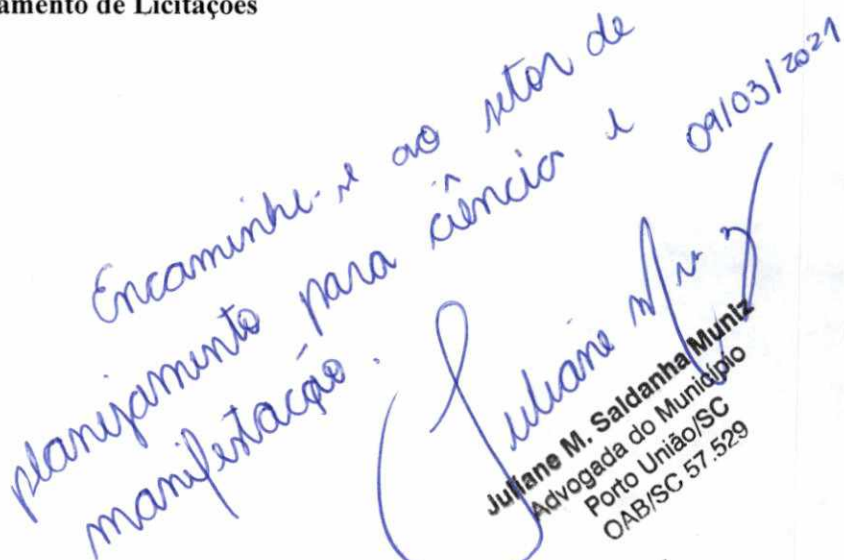 amento de Licitações
Encaminhe-se ao setor de
planejamento para ciência e
manifestação.
09/03/2021
Juliane Muniz
Juliane M. Saldanha Muniz
Advogada do Município
Porto União/SC
OAB/SC 57.529